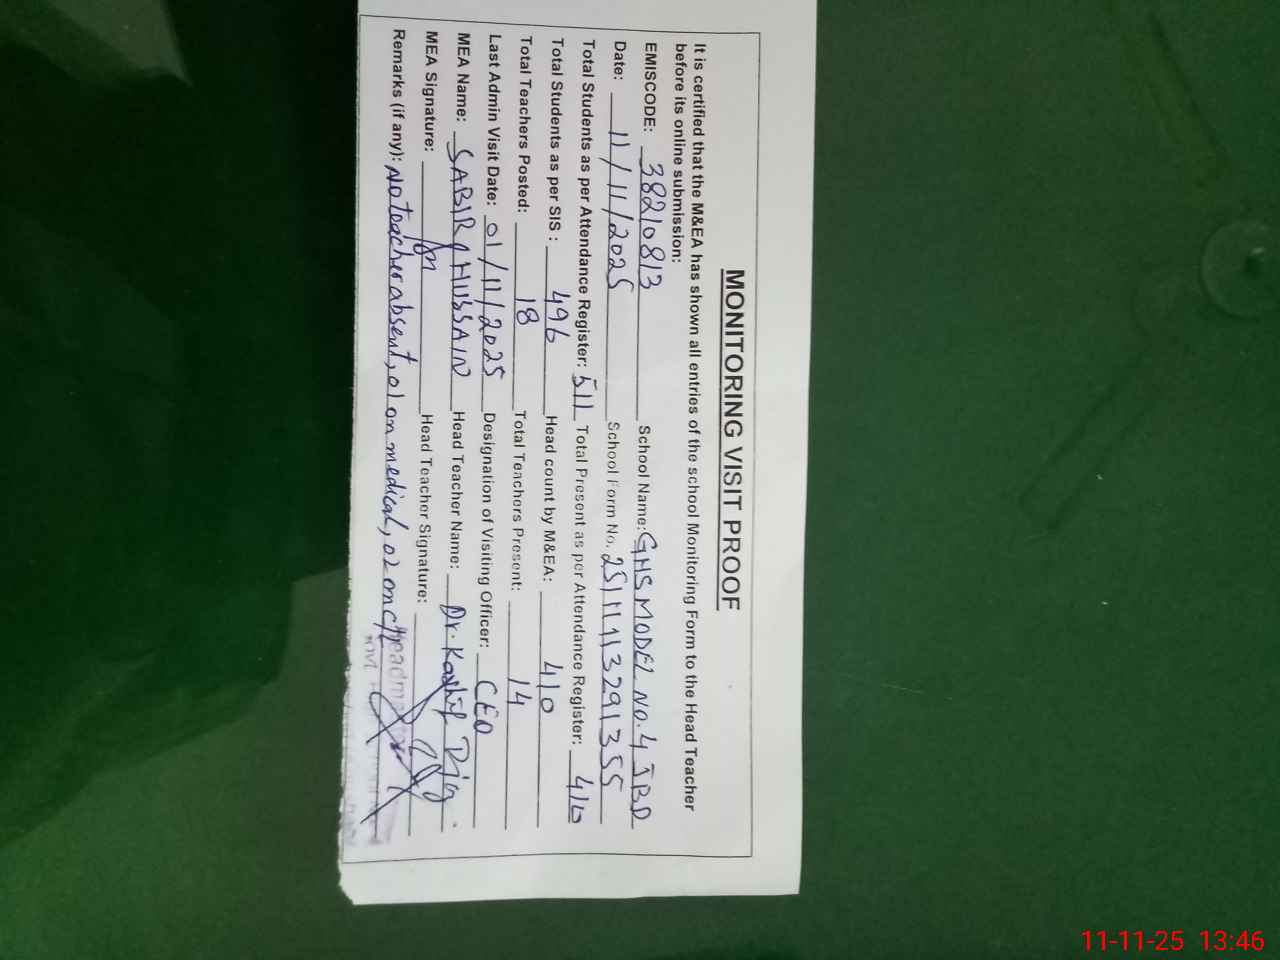 MONITORING VISIT PROOF
It is certified that the M&EA has shown all entries of the school Monitoring Form to the Head Teacher
before its online submission:
EMISCODE: 38210813 School Name: GHS MODEL NO.4 JBD
Date: 11/11/2025 School Form No. 2511113291355
Total Students as per Attendance Register: 511 Total Present as per Attendance Register: 410
Total Students as per SIS : 496 Head count by M&EA: 410
Total Teachers Posted: 18 Total Teachers Present: 14
Last Admin Visit Date: 01/11/2025 Designation of Visiting Officer: CEO
MEA Name: SABIR HUSSAIN Head Teacher Name: Dr. Kashif
MEA Signature: Head Teacher Signature:
Remarks (if any): No teacher absent, 01 on medical, 02 on C/L
11-11-25 13:46